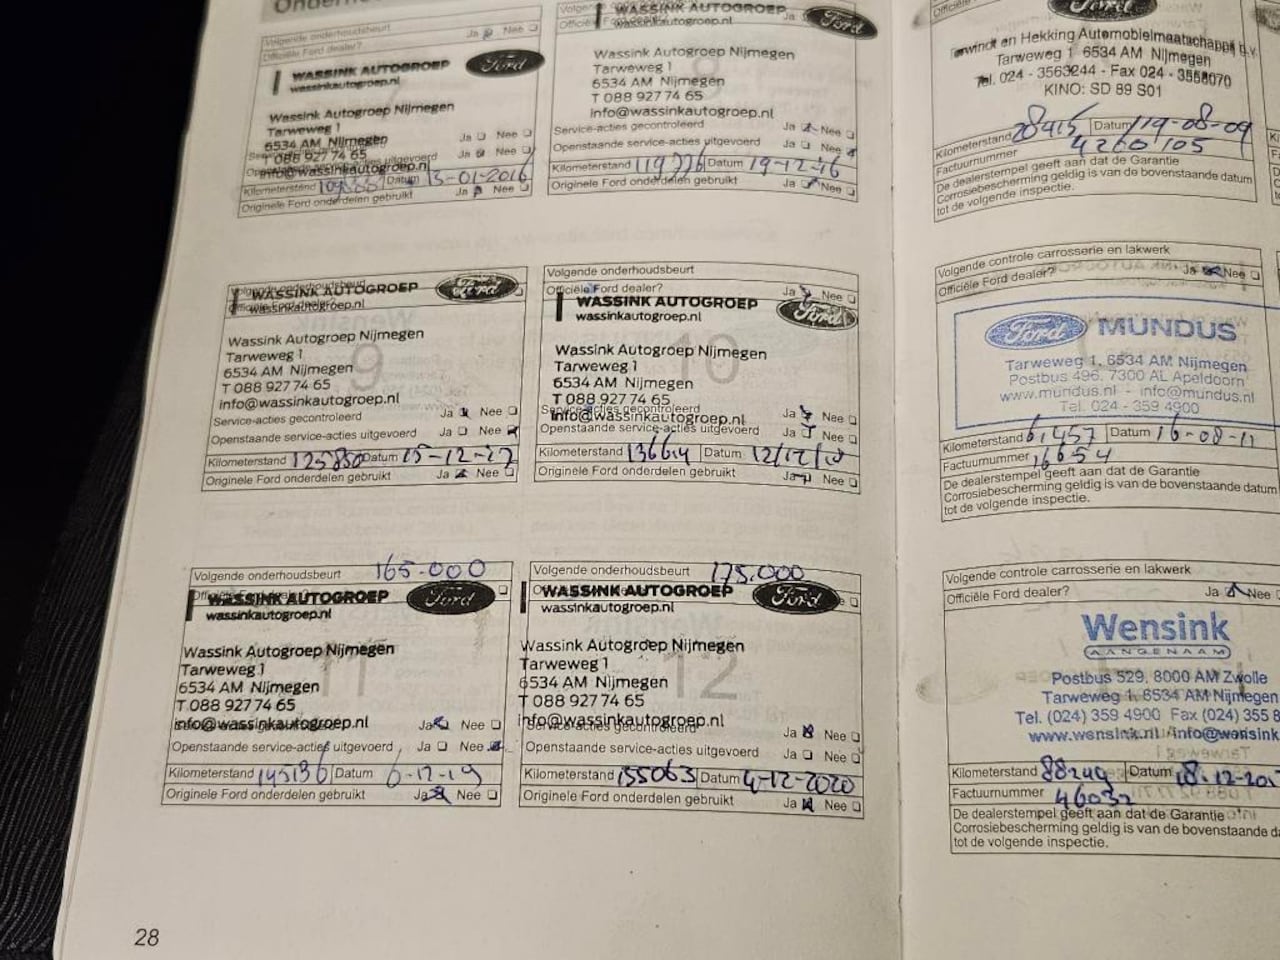 Volgende onderhoudsbeurt
Officiële Ford dealer?
Ja Nee
WASSINK AUTOGROEP
wassinkautogroep.nl
Ford
Wassink Autogroep Nijmegen
Tarweweg 1
6534 AM Nijmegen
088 927 74 65
info@wassinkautogroep.nl
Ja Nee
Ja Nee
Kilometerstand Datum 13-01-2016
Originele Ford onderdelen gebruikt Ja Nee
WASSINK AUTOGROEP
wassinkautogroep.nl
Ford
Wassink Autogroep Nijmegen
Tarweweg 1
6534 AM Nijmegen
T 088 927 74 65
info@wassinkautogroep.nl
8
Service-acties gecontroleerd Ja Nee
Openstaande service-acties uitgevoerd Ja Nee
Kilometerstand 119776 Datum 19-12-16
Originele Ford onderdelen gebruikt Ja Nee
WASSINK AUTOGROEP
wassinkautogroep.nl
Ford
Wassink Autogroep Nijmegen
Tarweweg 1
6534 AM Nijmegen
T 088 927 74 65
info@wassinkautogroep.nl
9
Service-acties gecontroleerd Ja Nee
Openstaande service-acties uitgevoerd Ja Nee
Kilometerstand 125850 Datum 15-12-17
Originele Ford onderdelen gebruikt Ja Nee
Volgende onderhoudsbeurt
Officiële Ford dealer? Ja Nee
WASSINK AUTOGROEP
wassinkautogroep.nl
Ford
Wassink Autogroep Nijmegen
Tarweweg 1
6534 AM Nijmegen
T 088 927 74 65
info@wassinkautogroep.nl
10
Service-acties gecontroleerd Ja Nee
Openstaande service-acties uitgevoerd Ja Nee
Kilometerstand 136614 Datum 12/12/18
Originele Ford onderdelen gebruikt Ja Nee
Volgende onderhoudsbeurt 165.000
WASSINK AUTOGROEP
wassinkautogroep.nl
Ford
Wassink Autogroep Nijmegen
Tarweweg 1
6534 AM Nijmegen
T 088 927 74 65
info@wassinkautogroep.nl
11
Ja Nee
Openstaande service-acties uitgevoerd Ja Nee
Kilometerstand 145136 Datum 6-12-19
Originele Ford onderdelen gebruikt Ja Nee
Volgende onderhoudsbeurt 175.000
WASSINK AUTOGROEP
wassinkautogroep.nl
Ford
Wassink Autogroep Nijmegen
Tarweweg 1
6534 AM Nijmegen
T 088 927 74 65
info@wassinkautogroep.nl
12
Service-acties gecontroleerd Ja Nee
Openstaande service-acties uitgevoerd Ja Nee
Kilometerstand 155063 Datum 4-12-2020
Originele Ford onderdelen gebruikt Ja Nee
28
Ford
en Hekking Automobielmaatschappij b.v.
Tarweweg 1 6534 AM Nijmegen
Tel. 024 - 3563244 - Fax 024 - 3558070
KINO: SD 89 S01
Kilometerstand 28415 Datum 19-08-09
Factuurnummer 4260105
De dealerstempel geeft aan dat de Garantie
Corrosiebescherming geldig is van de bovenstaande datum
tot de volgende inspectie.
Volgende controle carrosserie en lakwerk
Officiële Ford dealer? Ja Nee
Ford MUNDUS
Tarweweg 1, 6534 AM Nijmegen
Postbus 496, 7300 AL Apeldoorn
www.mundus.nl - info@mundus.nl
Tel. 024 - 359 4900
Kilometerstand 61457 Datum 16-08-11
Factuurnummer 16654
De dealerstempel geeft aan dat de Garantie
Corrosiebescherming geldig is van de bovenstaande datum
tot de volgende inspectie.
Volgende controle carrosserie en lakwerk
Officiële Ford dealer? Ja Nee
Wensink
AANGENAAM
Postbus 529, 8000 AM Zwolle
Tarweweg 1, 6534 AM Nijmegen
Tel. (024) 359 4900 Fax (024) 355 8
www.wensink.nl info@wensink
Kilometerstand 88249 Datum 18-12-20
Factuurnummer 46032
De dealerstempel geeft aan dat de Garantie
Corrosiebescherming geldig is van de bovenstaande
tot de volgende inspectie.